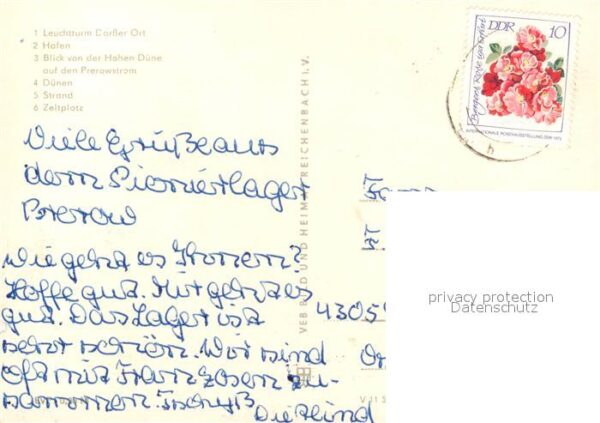 1 Leuchtturm Darßer Ort
2 Hafen
3 Blick von der Hohen Düne
auf den Prerowstrom
4 Dünen
5 Strand
6 Zeltplatz
DDR 10
INTERNATIONALE ROSENAUSSTELLUNG DER 1972
Viele Grüße aus
dem Pionierlager
Prerow
Wie geht es Ihnen?
Hoffe gut. Mir geht es
gut. Das Lager ist
sehr schön. Wir sind
oft mit Franzosen zu-
sammen.
VEB BILD UND HEIMAT REICHENBACH i. V.
4305
V 11 5
privacy protection
Datenschutz